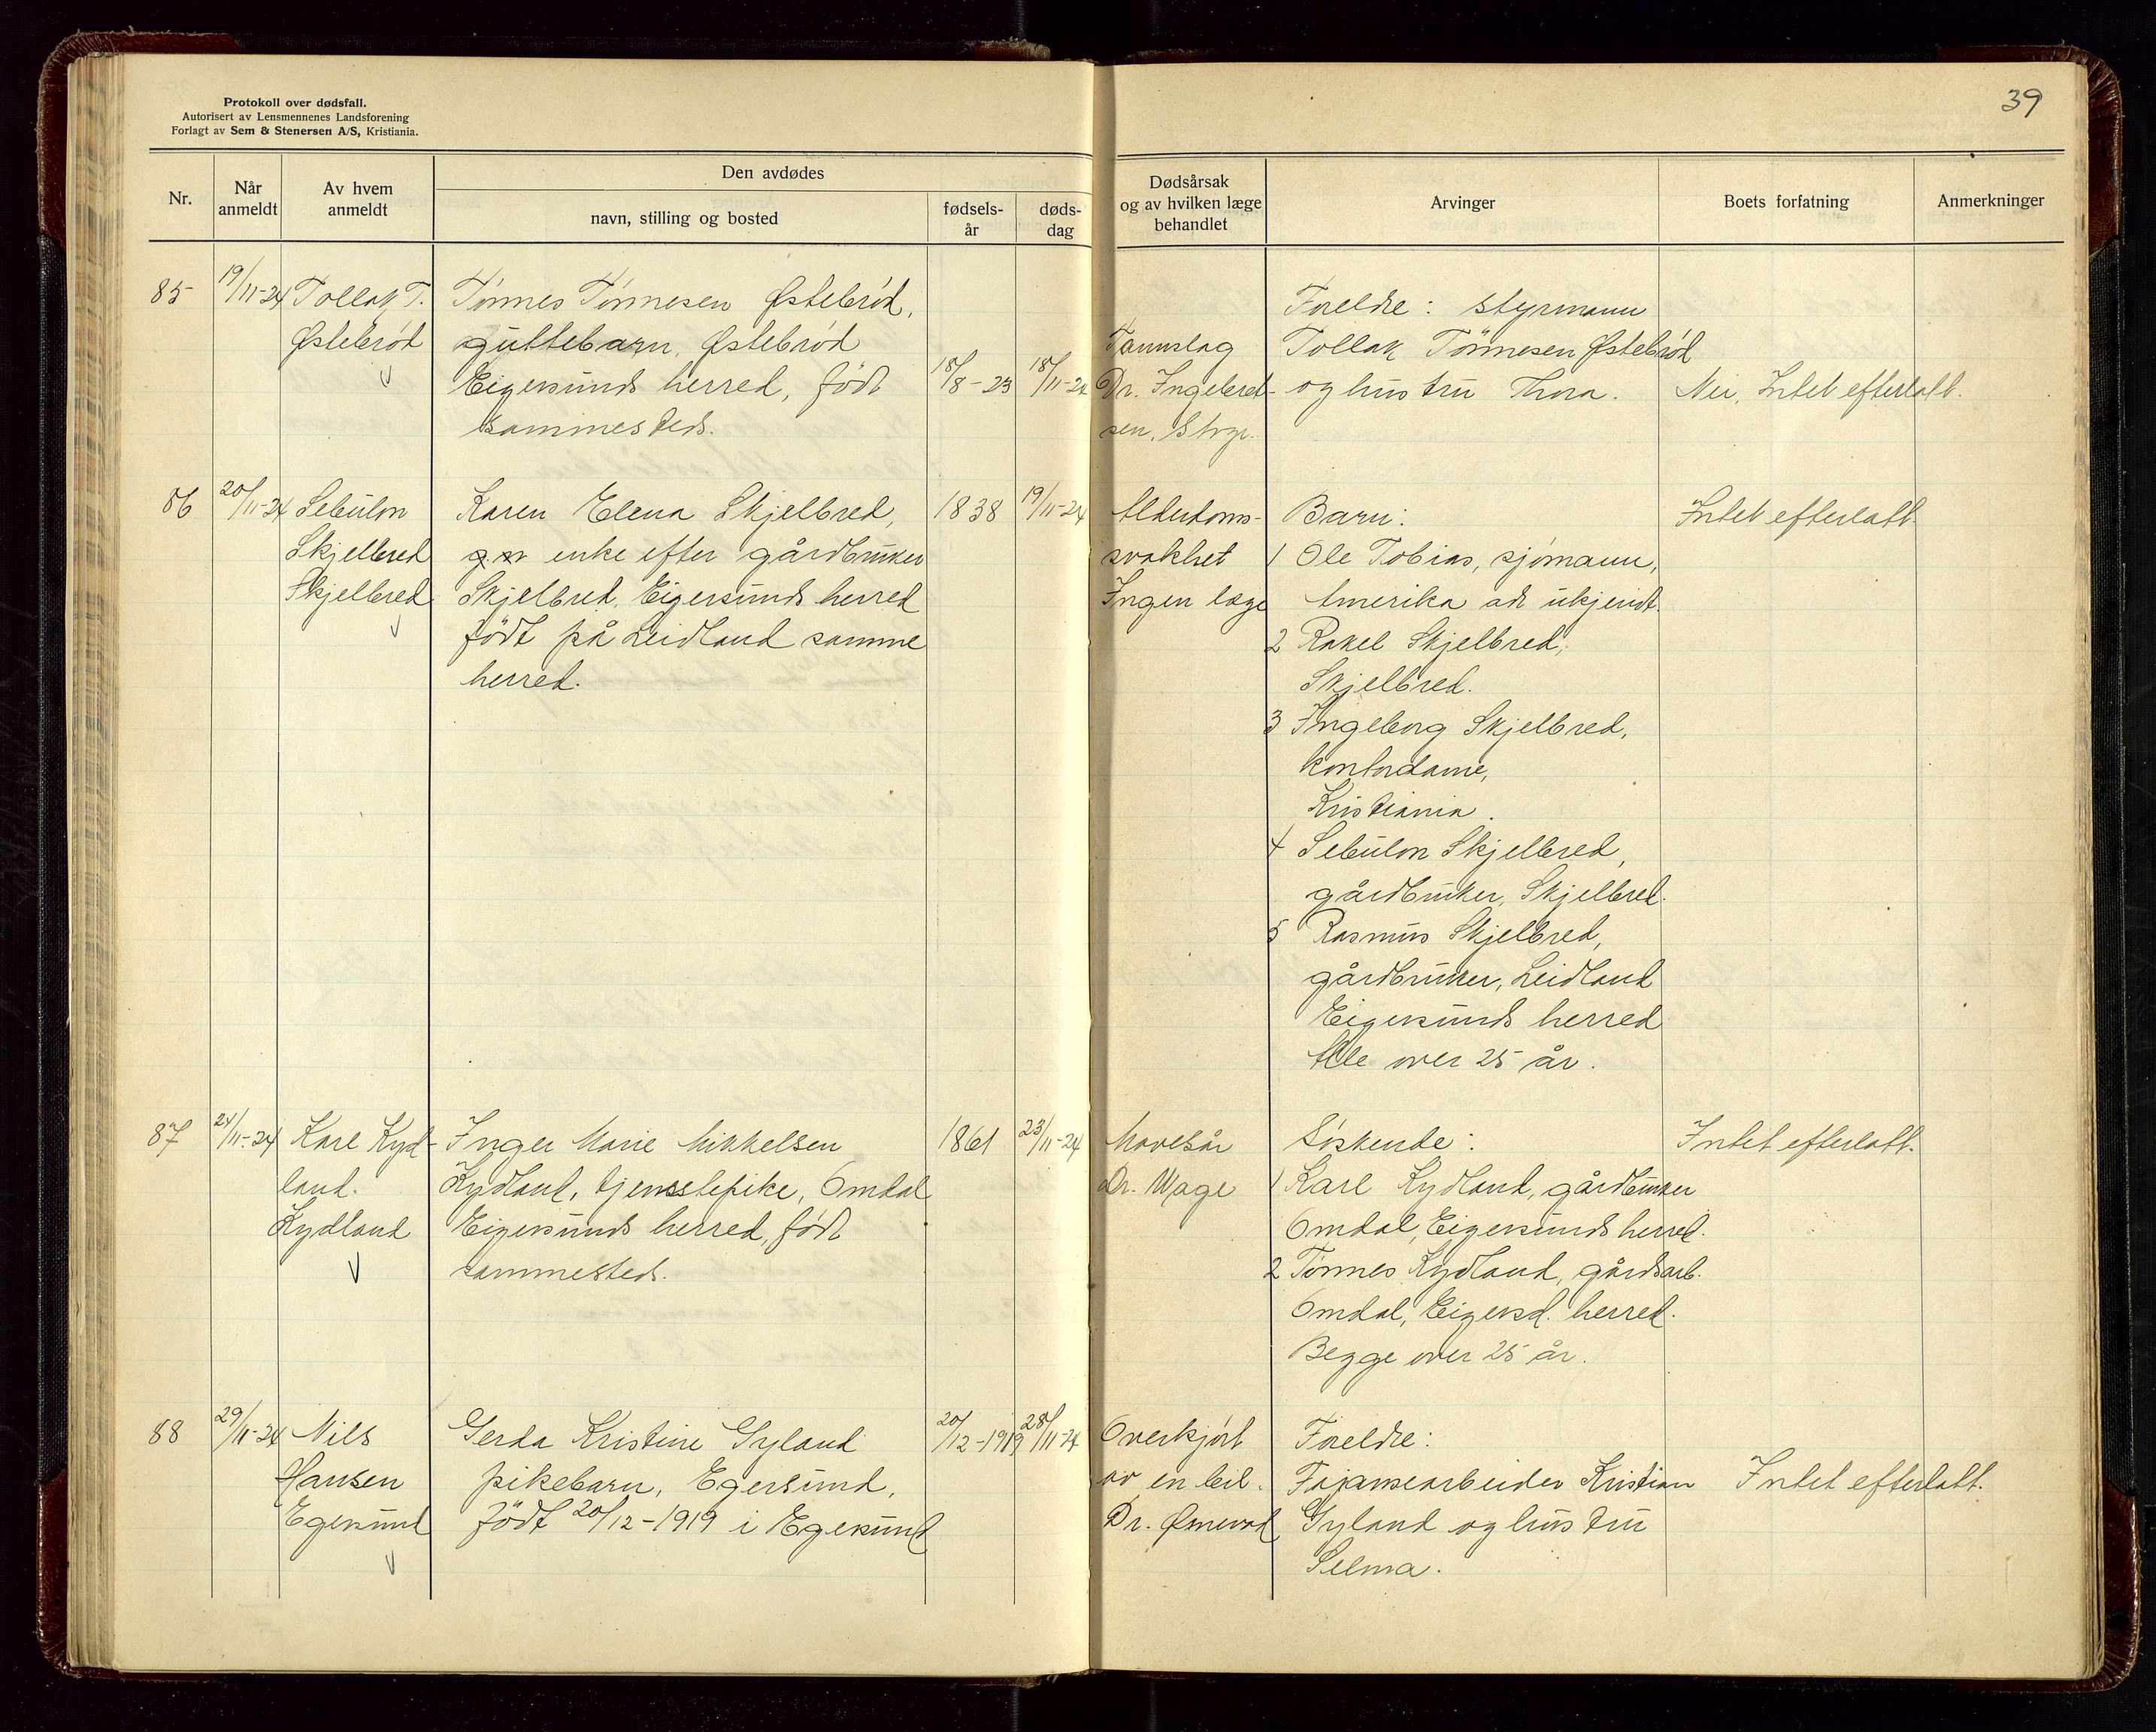 Protokoll over dødsfall.
Autorisert av Lensmennenes Landsforening
Forlagt av Sem & Stenersen A/S, Kristiania.
39
Nr.
Når anmeldt
Av hvem anmeldt
Den avdødes
navn, stilling og bosted
fødsels-år
døds-dag
Dødsårsak og av hvilken læge behandlet
Arvinger
Boets forfatning
Anmerkninger
85
19/11-24
Tollak T.
Østebrød
Tønnes Tønnesen Østebrød,
guttebarn, Østebrød
Eigersunds herred, født
sammesteds.
18/8-23
18/11-24
Dr. Ingebret-
sen,
Foreldre: styrmann
Tollak Tønnesen Østebrød
og hustru Thora.
Nei, Intet efterlatt.
86
20/11-24
Sebulon
Skjelbred
Skjelbred
Karen Elena Skjelbred,
enke efter gårdbruker
Skjelbred, Eigersunds herred
født på Leidland samme
herred.
1838
19/11-24
Alderdoms-
svakhet
Ingen læge
Barn:
1 Ole Tobias, sjømann,
Amerika adr ukjendt.
2 Rakel Skjelbred,
Skjelbred.
3 Ingeborg Skjelbred,
kontordame,
Kristiania.
4 Sebulon Skjelbred,
gårdbruker, Skjelbred.
5 Rasmus Skjelbred,
gårdbruker, Leidland
Eigersunds herred
Alle over 25 år.
Intet efterlatt
87
24/11-24
Karl Kyd-
land.
Kydland
Inger Marie Mikkelsen
Kydland, tjenestepike, Omdal
Eigersunds herred, født
sammesteds.
1861
23/11-24
Mavesår
Dr. Wage
Søskende:
1 Karl Kydland, gårdbruker
Omdal, Eigersunds herred.
2 Tønnes Kydland, gårdsarb.
Omdal, Eigersd. herred.
Begge over 25 år.
Intet efterlatt.
88
29/11-24
Nils
Hansen
Egersund
Gerda Kristine Gyland
pikebarn, Egersund,
født 20/12-1919 i Egersund
20/12-1919
28/11-24
Overkjørt
av en bil.
Dr.
Foreldre:
Fajansearbeider Kristian
Gyland og hustru
Selma.
Intet efterlatt.